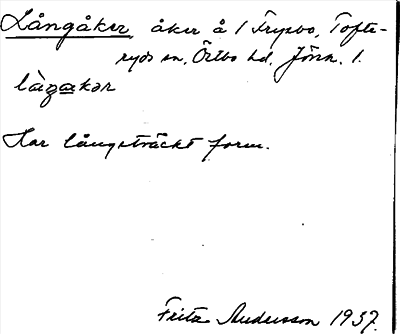 Långåker, åker å 1 Frysbo, Tofte-
ryds sn, Östbo hd, Jönk. l.
Har långsträckt form.
Fritz Andersson 1937.